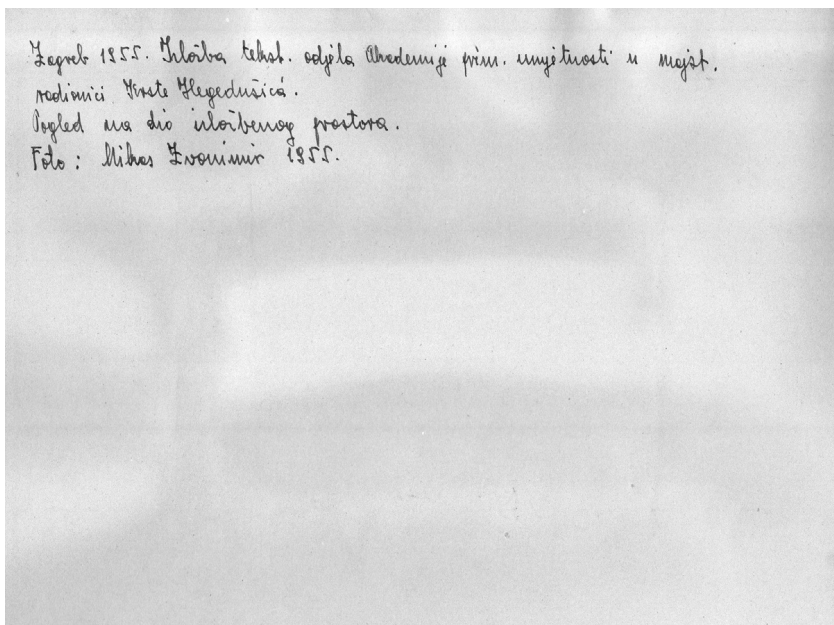 Zagreb 1955. Izložba tekst. odjela Akademije prim. umjetnosti u majst.
radionici Krste Hegedušića.
Pogled na dio izložbenog prostora.
Foto: Mikas Zvonimir 1955.